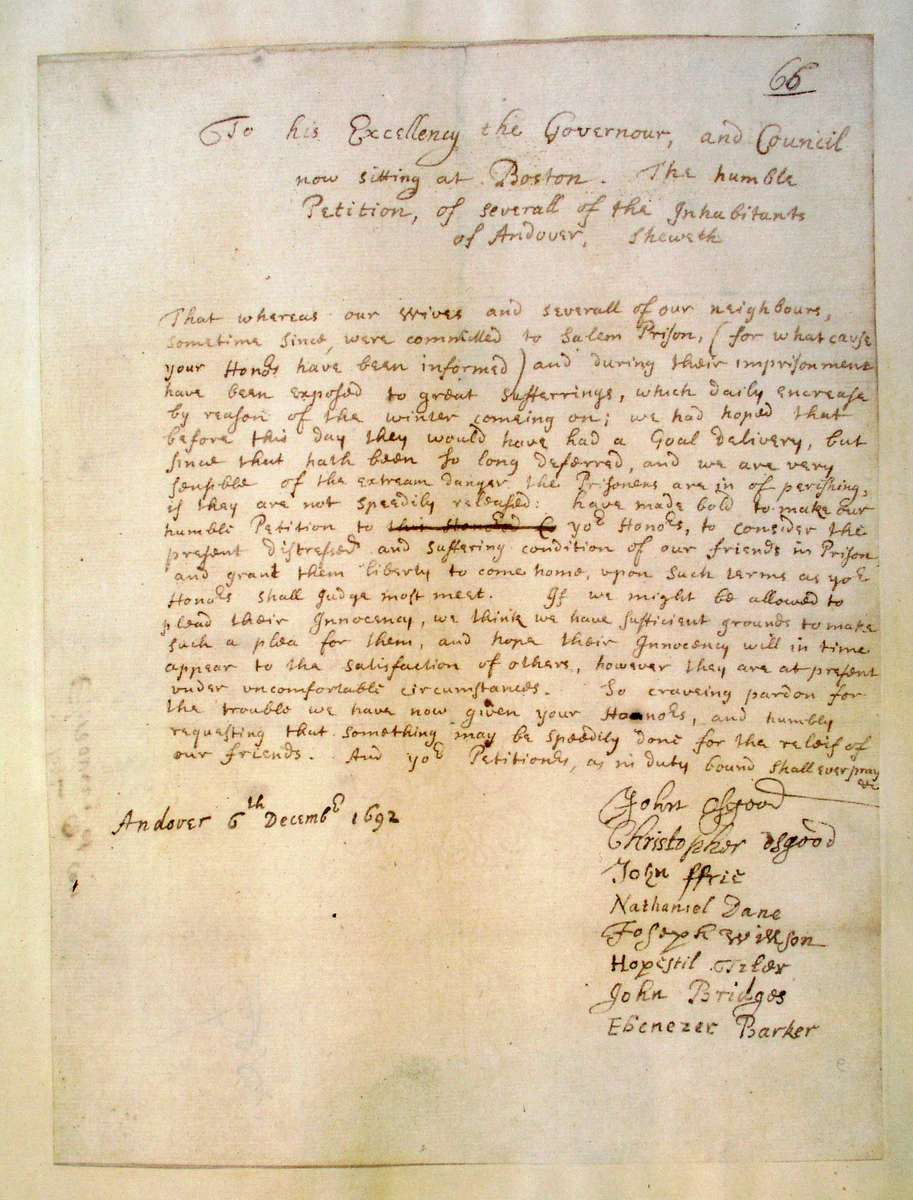 66
To his Excellency the Governour, and Council
now sitting at Boston. The humble
Petition, of severall of the Inhabitants
of Andover, sheweth
That whereas our wives and severall of our neighbours,
sometime since, were committed to Salem Prison, (for what cause
your Honors have been informed) and during their imprisonment
have been exposed to great sufferrings, which daily encrease
by reason of the winter comeing on; we had hoped that
before this day they would have had a Goal delivery, but
since that hath been so long deferred, and we are very
sensible of the extream danger the Prisoners are in of perishing,
if they are not speedily released: have made bold to make our
humble Petition to this Honoed C yor Honors, to consider the
present distressed and suffering condition of our friends in Prison
and grant them liberty to come home, upon such terms as yor
Honors shall Judge most meet. If we might be allowed to
plead their Innocency, we think we have sufficient grounds to make
such a plea for them, and hope their Innocency will in time
appear to the satisfaction of others, however they are at present
under uncomfortable circumstances. So craveing pardon for
the trouble we have now given your Honors, and humbly
requesting that something may be speedily done for the releif of
our friends. And yor Petitionrs, as in duty bound shall ever pray
&c
Andover 6th Decembr 1692
John Osgood
Christopher osgood
John ffrie
Nathaniel Dane
Joseph willson
Hopestil Tiler
John Bridges
Ebenezer Barker